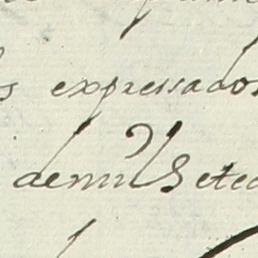 s expressados
demil Setec